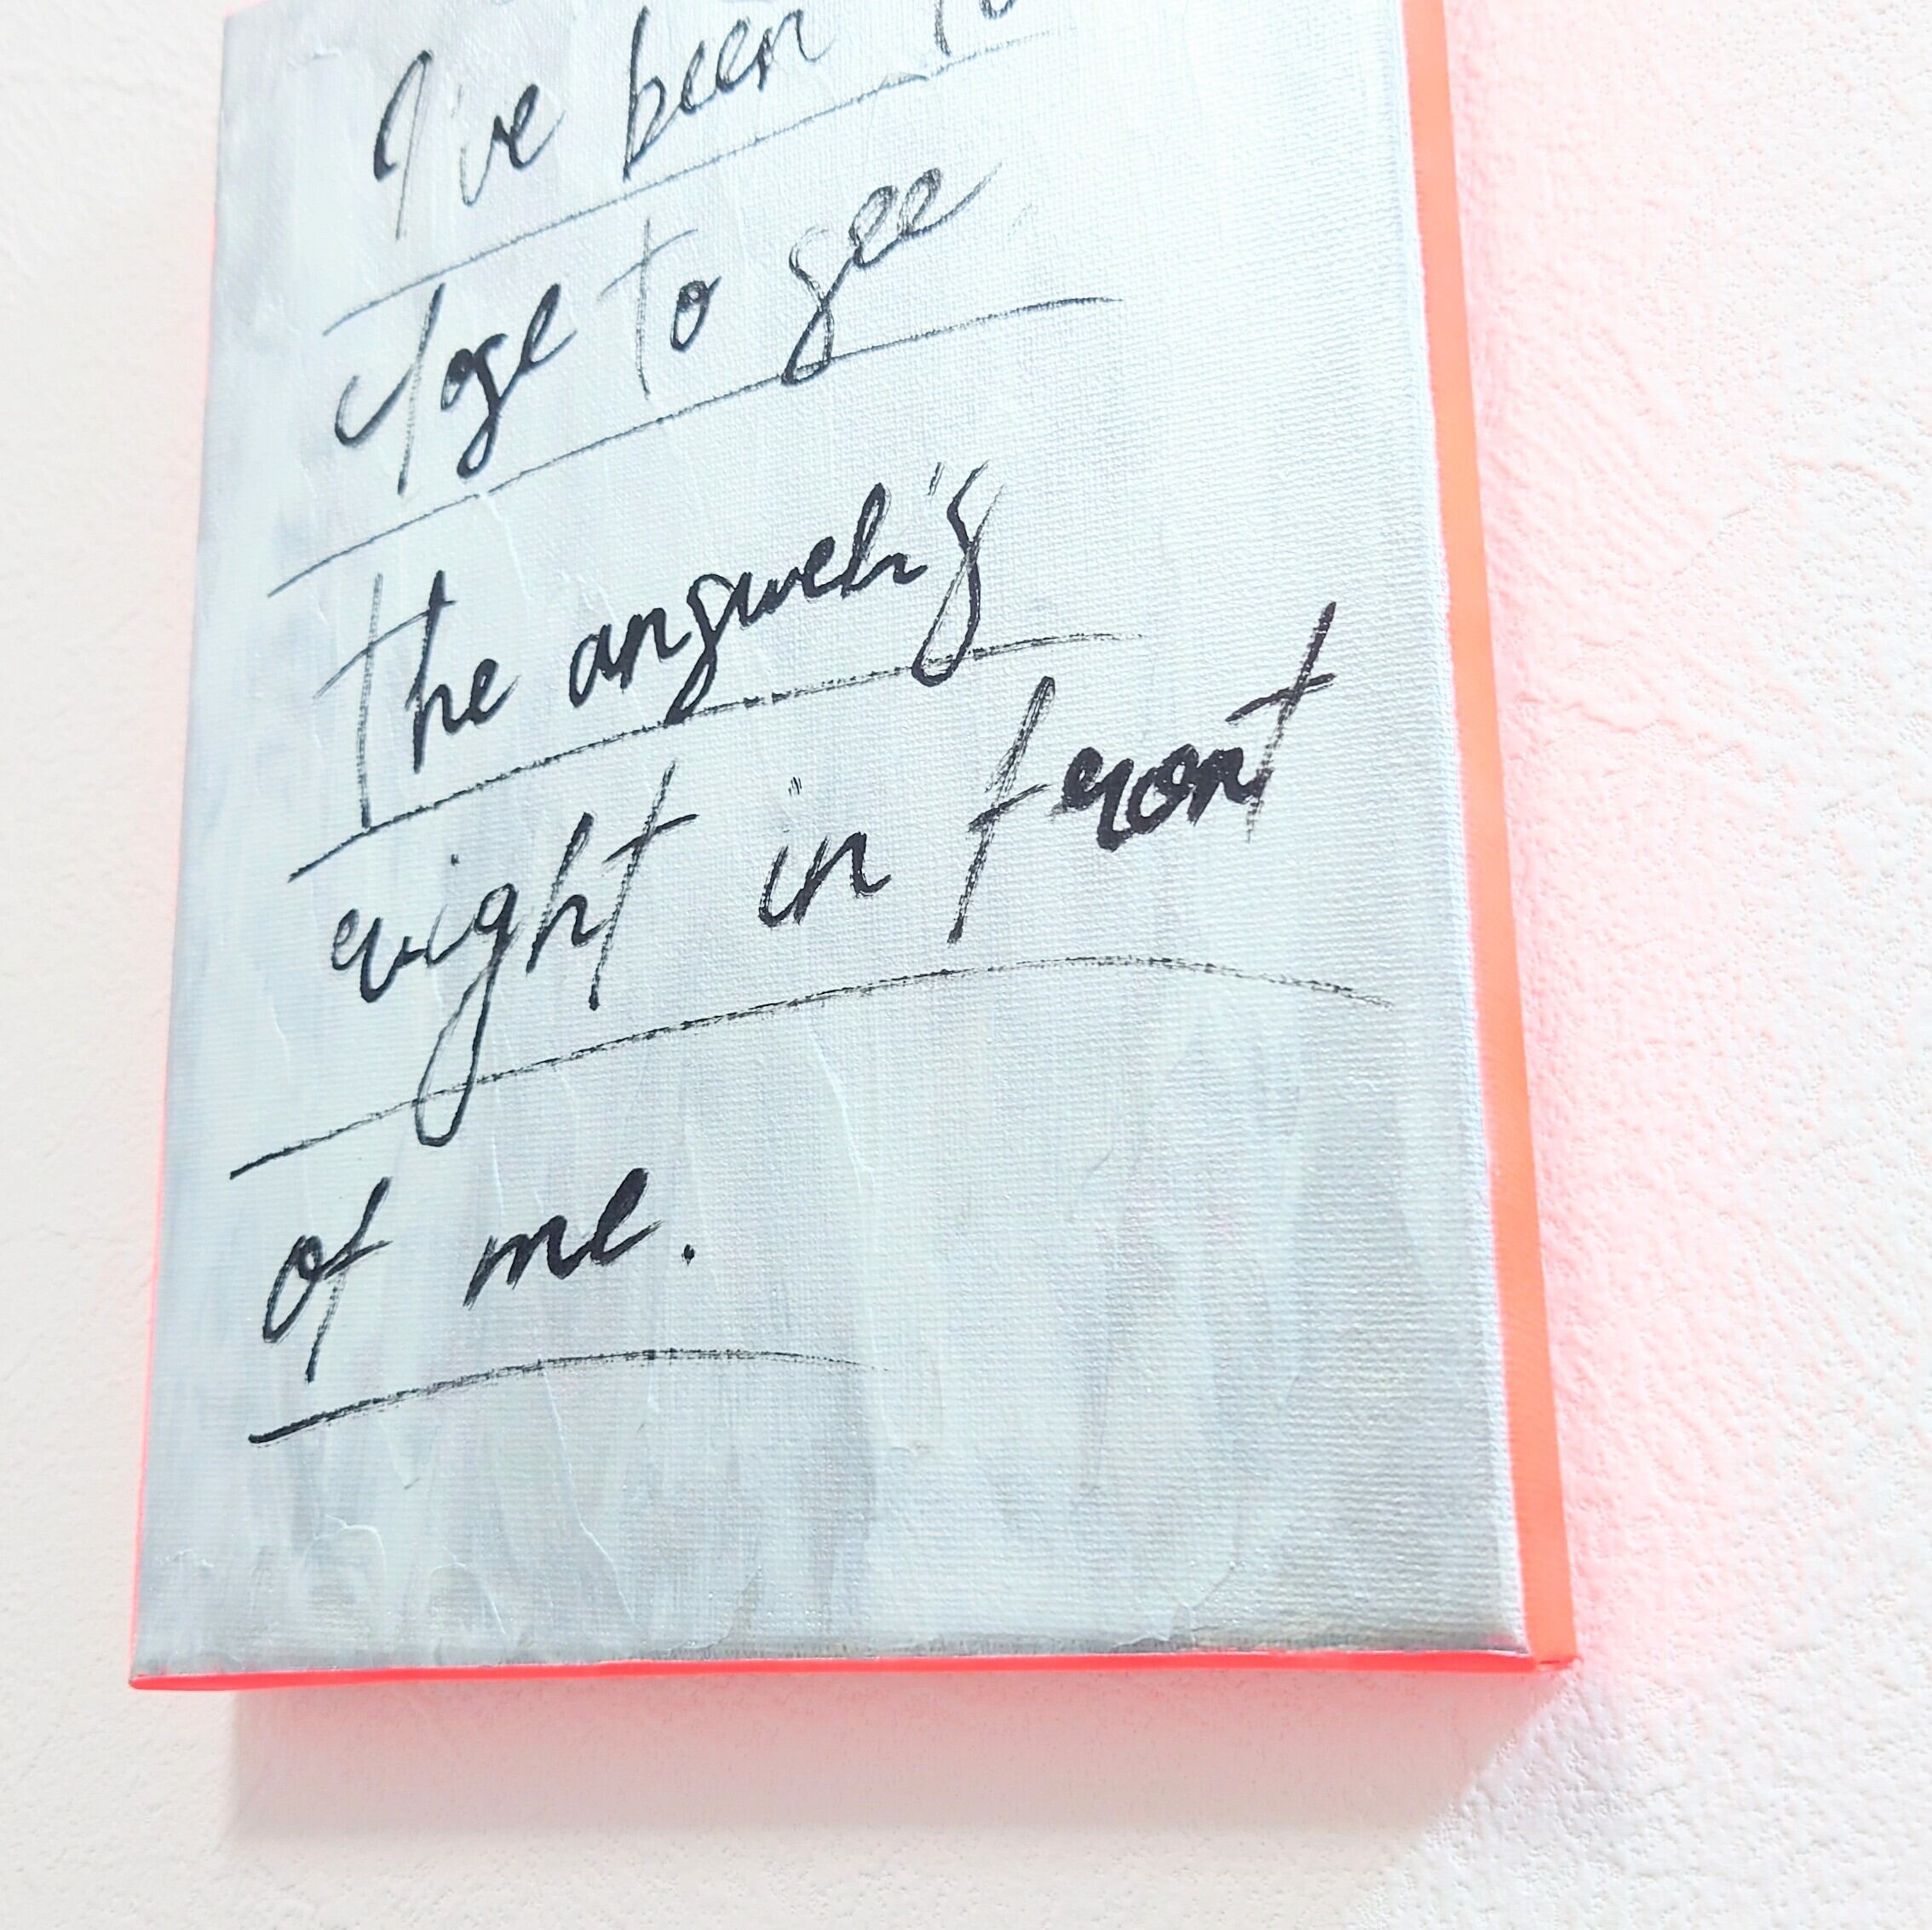 I've been
close to see
The answer's
right in front
of me.